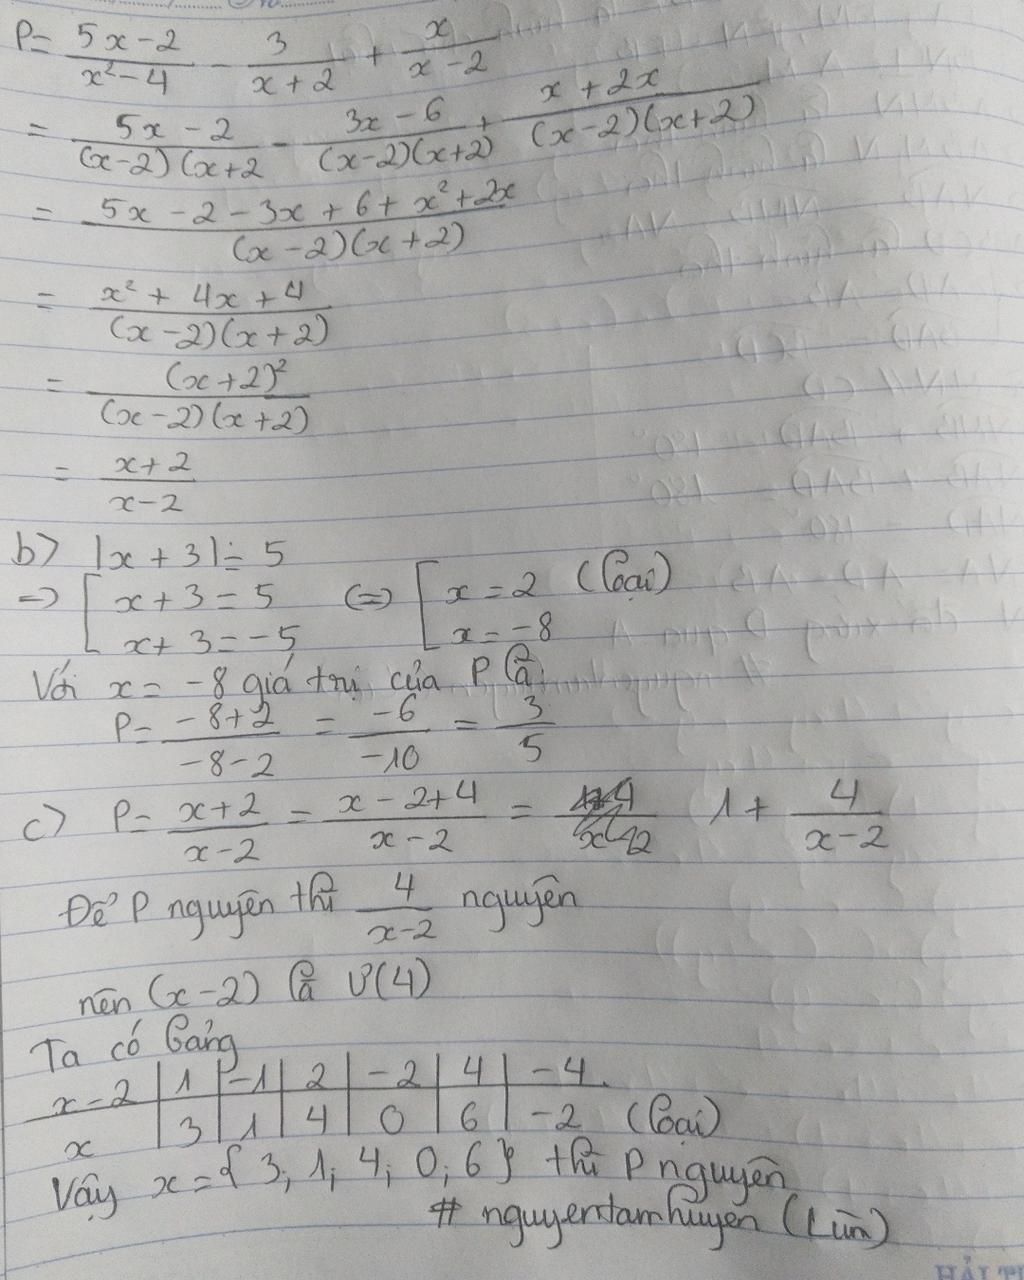 P = (5x - 2)/(x² - 4) - 3/(x + 2) + x/(x - 2)
= (5x - 2)/((x-2)(x+2) - (3x - 6)/((x-2)(x+2)) + (x + 2x)/((x-2)(x+2))
= (5x - 2 - 3x + 6 + x² + 2x)/((x - 2)(x + 2))
= (x² + 4x + 4)/((x - 2)(x + 2))
= (x+2)²/((x - 2)(x + 2))
= (x + 2)/(x - 2)
b) |x + 3| = 5
=> [ x + 3 = 5 (=> [ x = 2 (loại)
x + 3 = -5 x = -8
Với x = -8 giá trị của P là:
P = (-8+2)/(-8-2) = -6/-10 = 3/5
c) P = (x+2)/(x-2) = (x - 2+4)/(x - 2) = 1 + 4/(x-2)
Để P nguyên thì 4/(x-2) nguyên
nên (x-2) là Ư(4)
Ta có bảng
x-2 | 1 | -1 | 2 | -2 | 4 | -4
x | 3 | 1 | 4 | 0 | 6 | -2 (loại)
Vậy x = { 3; 1; 4; 0; 6 } thì P nguyên
# nguyentamhuyen (Lùn)